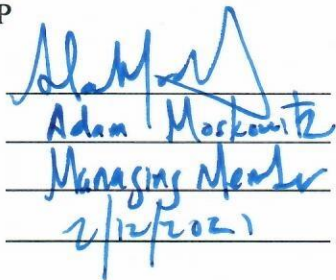 P
Adam Moskowitz
Managing Member
2/12/2021